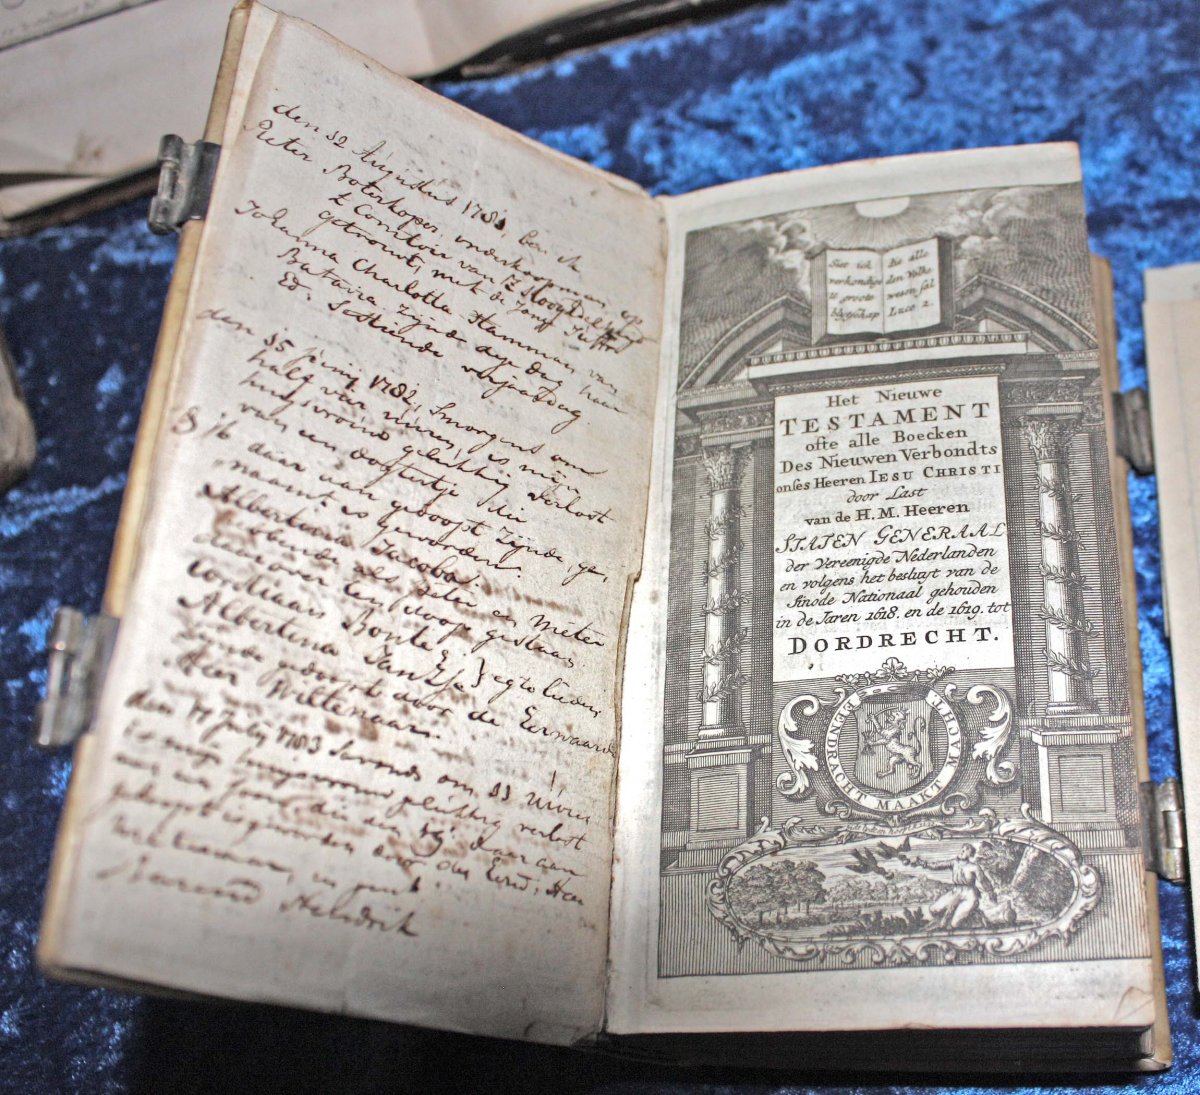 den 12 Augustus 1781, ben ik
Pieter Boterkoper, onderkoopman, en
't Comtoir van 't
getrouwt, met de Jonge Juffr
Johanna Charlotta Hamman van
Batavia zijnde dien dag haar
Ed. Sestiende verjaardag.
den 15 Junij 1782, Smorgens om
half vier uuren is mijn
huijsvrouw gelukkig verlost
van een dogtertje die
16 daar aan gedoopt zijnde, ge,
naamt is geworden.
Albertina Jacoba.
hebbende als Peter en Meter
daar over ten doop gestaan
Albertina Jantje } egte lieden,
zijnde gedoopt door de Eerwaarde
Heer Wiltenaar.
den 11 Julij 1783 Savonds om 11 Uuren
is mijn huijsvrouw gelukkig verlost
van een Soon die den daar aan
gedoopt is geworden door den Eerw: Heer
Barend Hendrik
Siet ick
verkondige
U groote
blijtschap
die alle
den Volke
wesen sal
Luce 2.
Het Nieuwe
TESTAMENT
ofte alle Boecken
Des Nieuwen Verbondts
onses Heeren IESU CHRISTI
door Last
van de H.M. Heeren
STATEN GENERAAL
der Vereenigde Nederlanden
en volgens het besluyt van de
Sinode Nationaal gehouden
in de Jaren 1618. en de 1619. tot
DORDRECHT.
EENDRACHT MAAKT MACHT